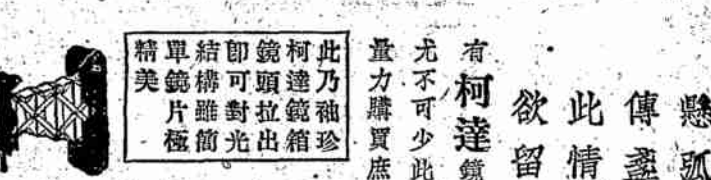 懸弧
傳盞
此情
欲留
有柯達鏡
尤不可少此
量力購買庶
此乃袖珍
柯達鏡箱
鏡頭拉出
卽可對光
結構雖簡
單鏡片極
精美